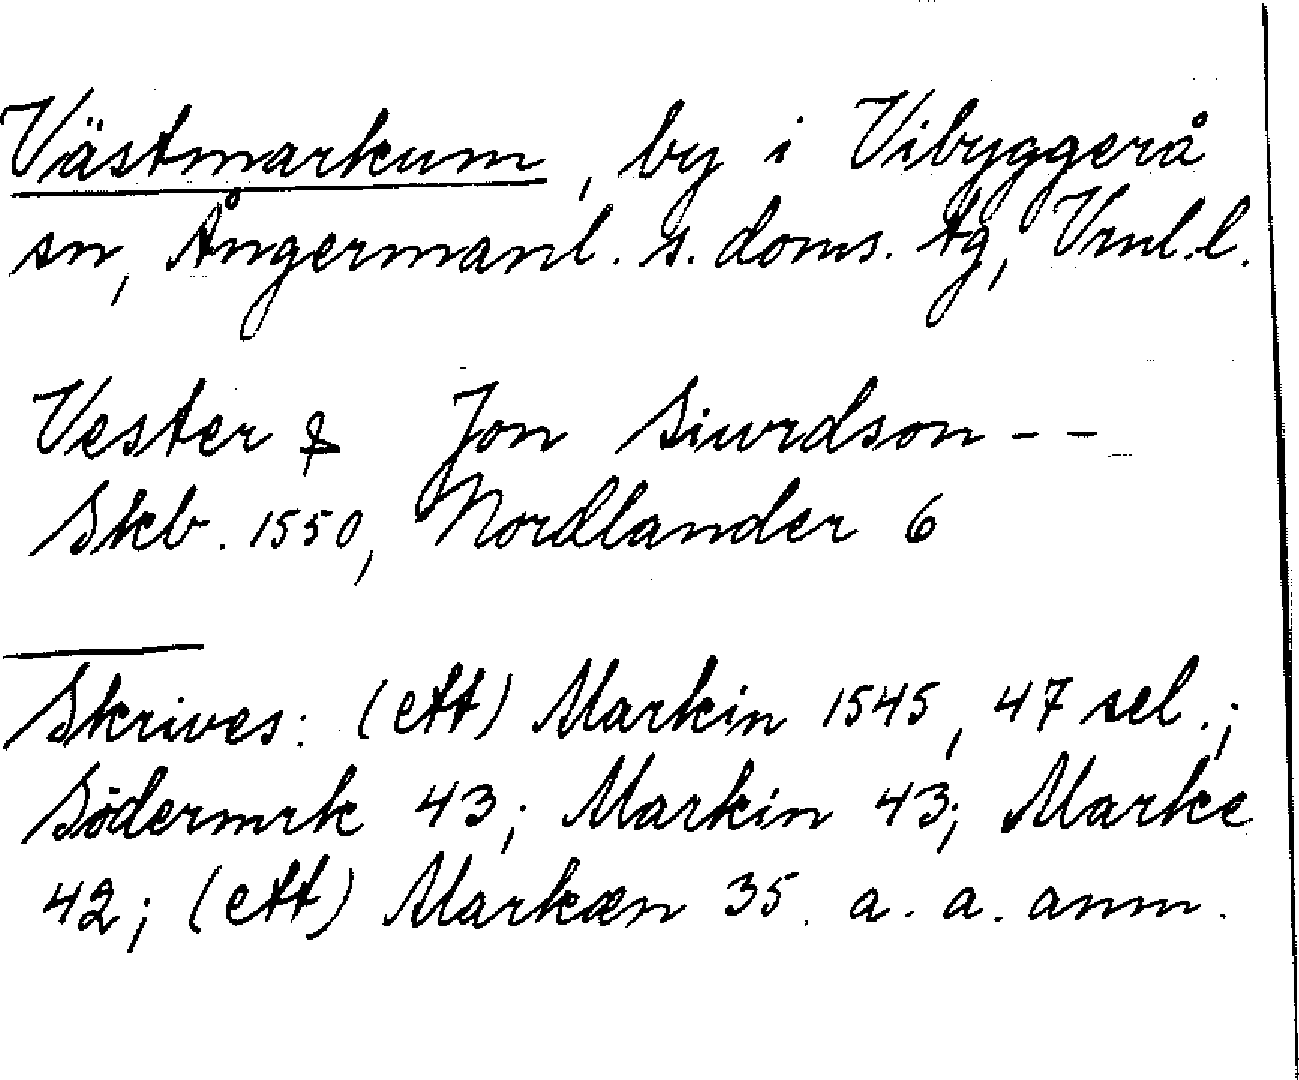 Västmarkum, by i Vibyggerå
sn, Ångermanl. s. doms. tg, Vrnl.l.
Vester Jon Siurdson - -
Skb. 1550, Nordlander 6
Skrives: (ett) Markin 1545, 47 sel.;
Södermrk 43; Markin 43; Marke
42; (ett) Markæn 35. a. a. anm.